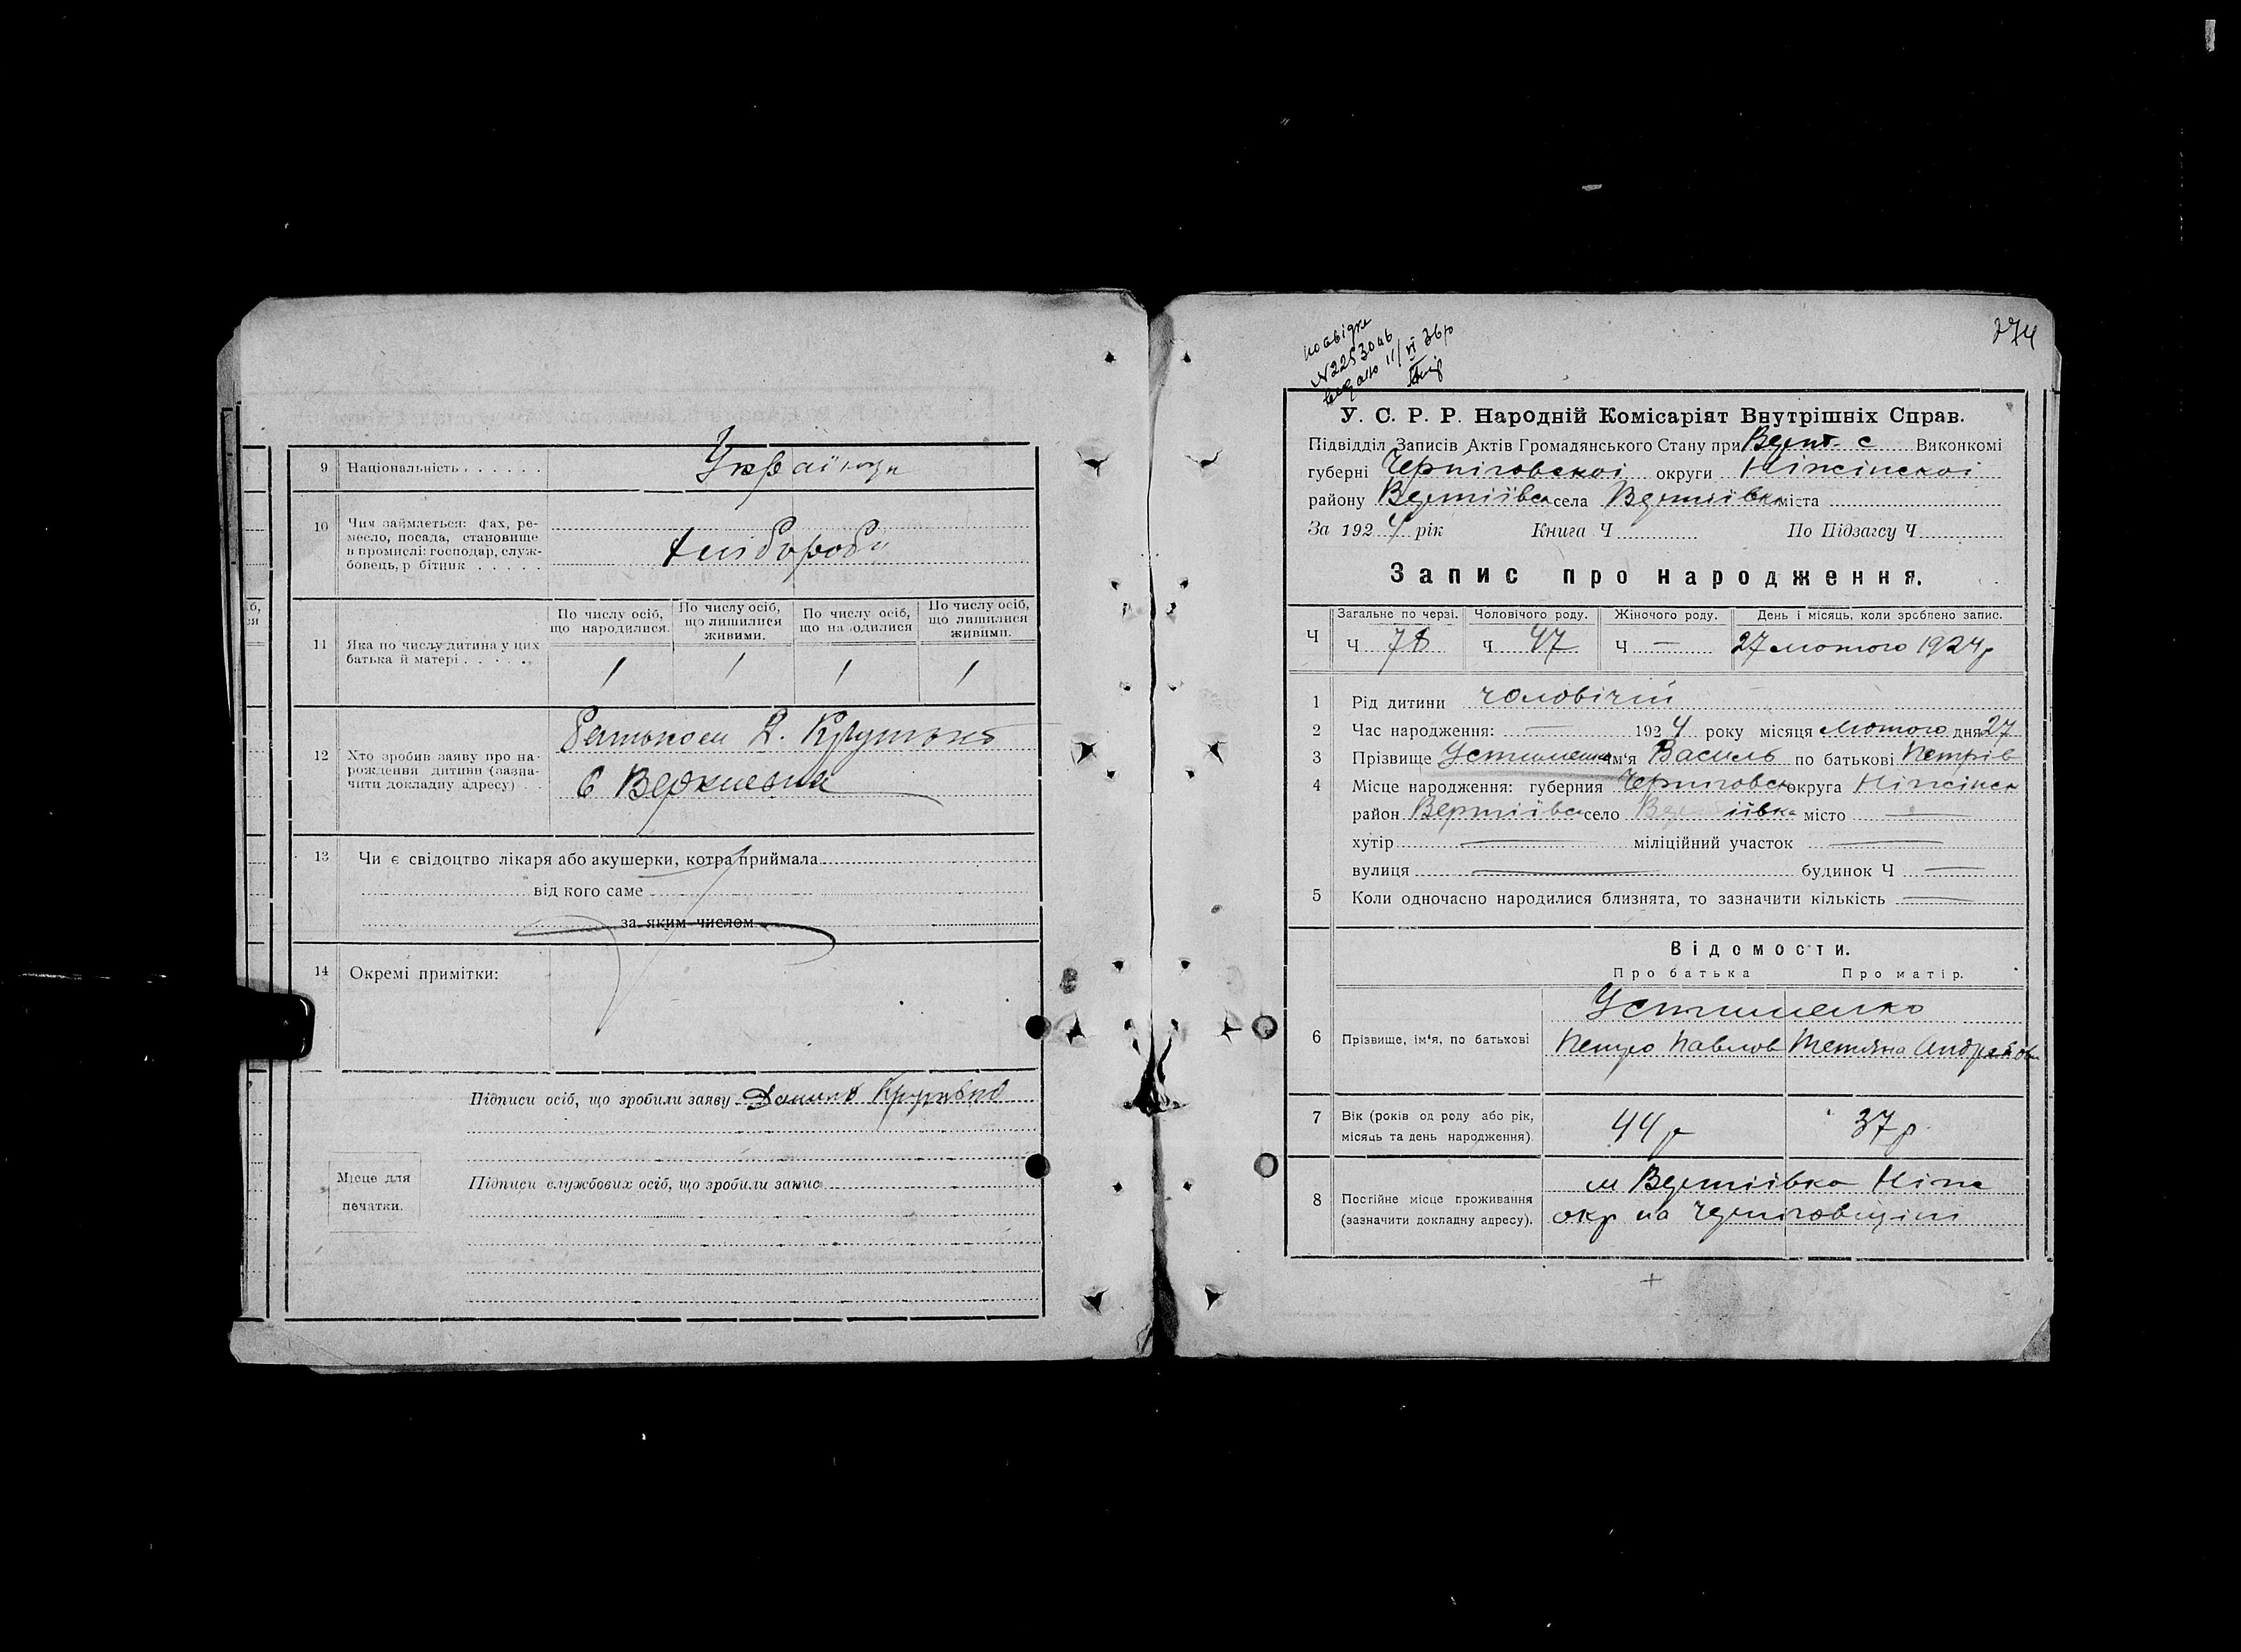 9 Національність . . . . . . Українци
10 Чим займається: фах, ре-
месло, посада, становище
в промислі: господар, служ-
бовець, р бітник . . . . . хліборобы
11 Яка по числу дитина у цих
батька й матері . . . . .
По числу осіб, що народилися.
По числу осіб, що лишилися живими.
По числу осіб, що на одилися
По числу осіб, що лишилися живими.
1 1 1 1
12 Хто зробив заяву про на-
рождення дитини (зазна-
чити докладну адресу) . .
Д.
13 Чи є свідоцтво лікаря або акушерки, котра приймала
від кого саме
за яким числом
14 Окремі примітки:
Підписи осіб, що зробили заяву
Підписи службових осіб, що зробили запис
Місце для
печатки.
274
посвідка
N 2253046
видано 11/VI 36 р
У. С. Р. Р. Народній Комісаріят Внутрішніх Справ.
Підвідділ Записів Актів Громадянського Стану при Верт. с Виконкомі
губерні Черніговскоі округи Ніжінскоі
району Вертіївск села Вертіївка міста
За 1924 рік Книга Ч По Підзагсу Ч
Запис про народження.
Загальне по черзі. Чоловічого роду. Жіночого роду. День і місяць, коли зроблено запис.
Ч Ч 78 Ч 47 Ч — 27 лютого 1924 р
1 Рід дитини чоловічій
2 Час народження: — 1924 року місяця лютого дня 27
3 Прізвище Устименко ім'я Василь по батькові Петрів
4 Місце народження: губерния Черниговск округа Ніжінск
район Вертіївск село Вертіївка місто —
хутір — міліційний участок —
вулиця — будинок Ч —
5 Коли одночасно народилися близнята, то зазначити кількість —
Відомости.
Про батька Про матір.
Устименко
6 Прізвище, ім'я, по батькові Петро Павлов Тетяна Андрійов
7 Вік (років од роду або рік,
місяць та день народження) 44 р 37 р
8 Постійне місце проживання
(зазначити докладну адресу).
м Вертіївка Ніж
окр на Черніговщіні